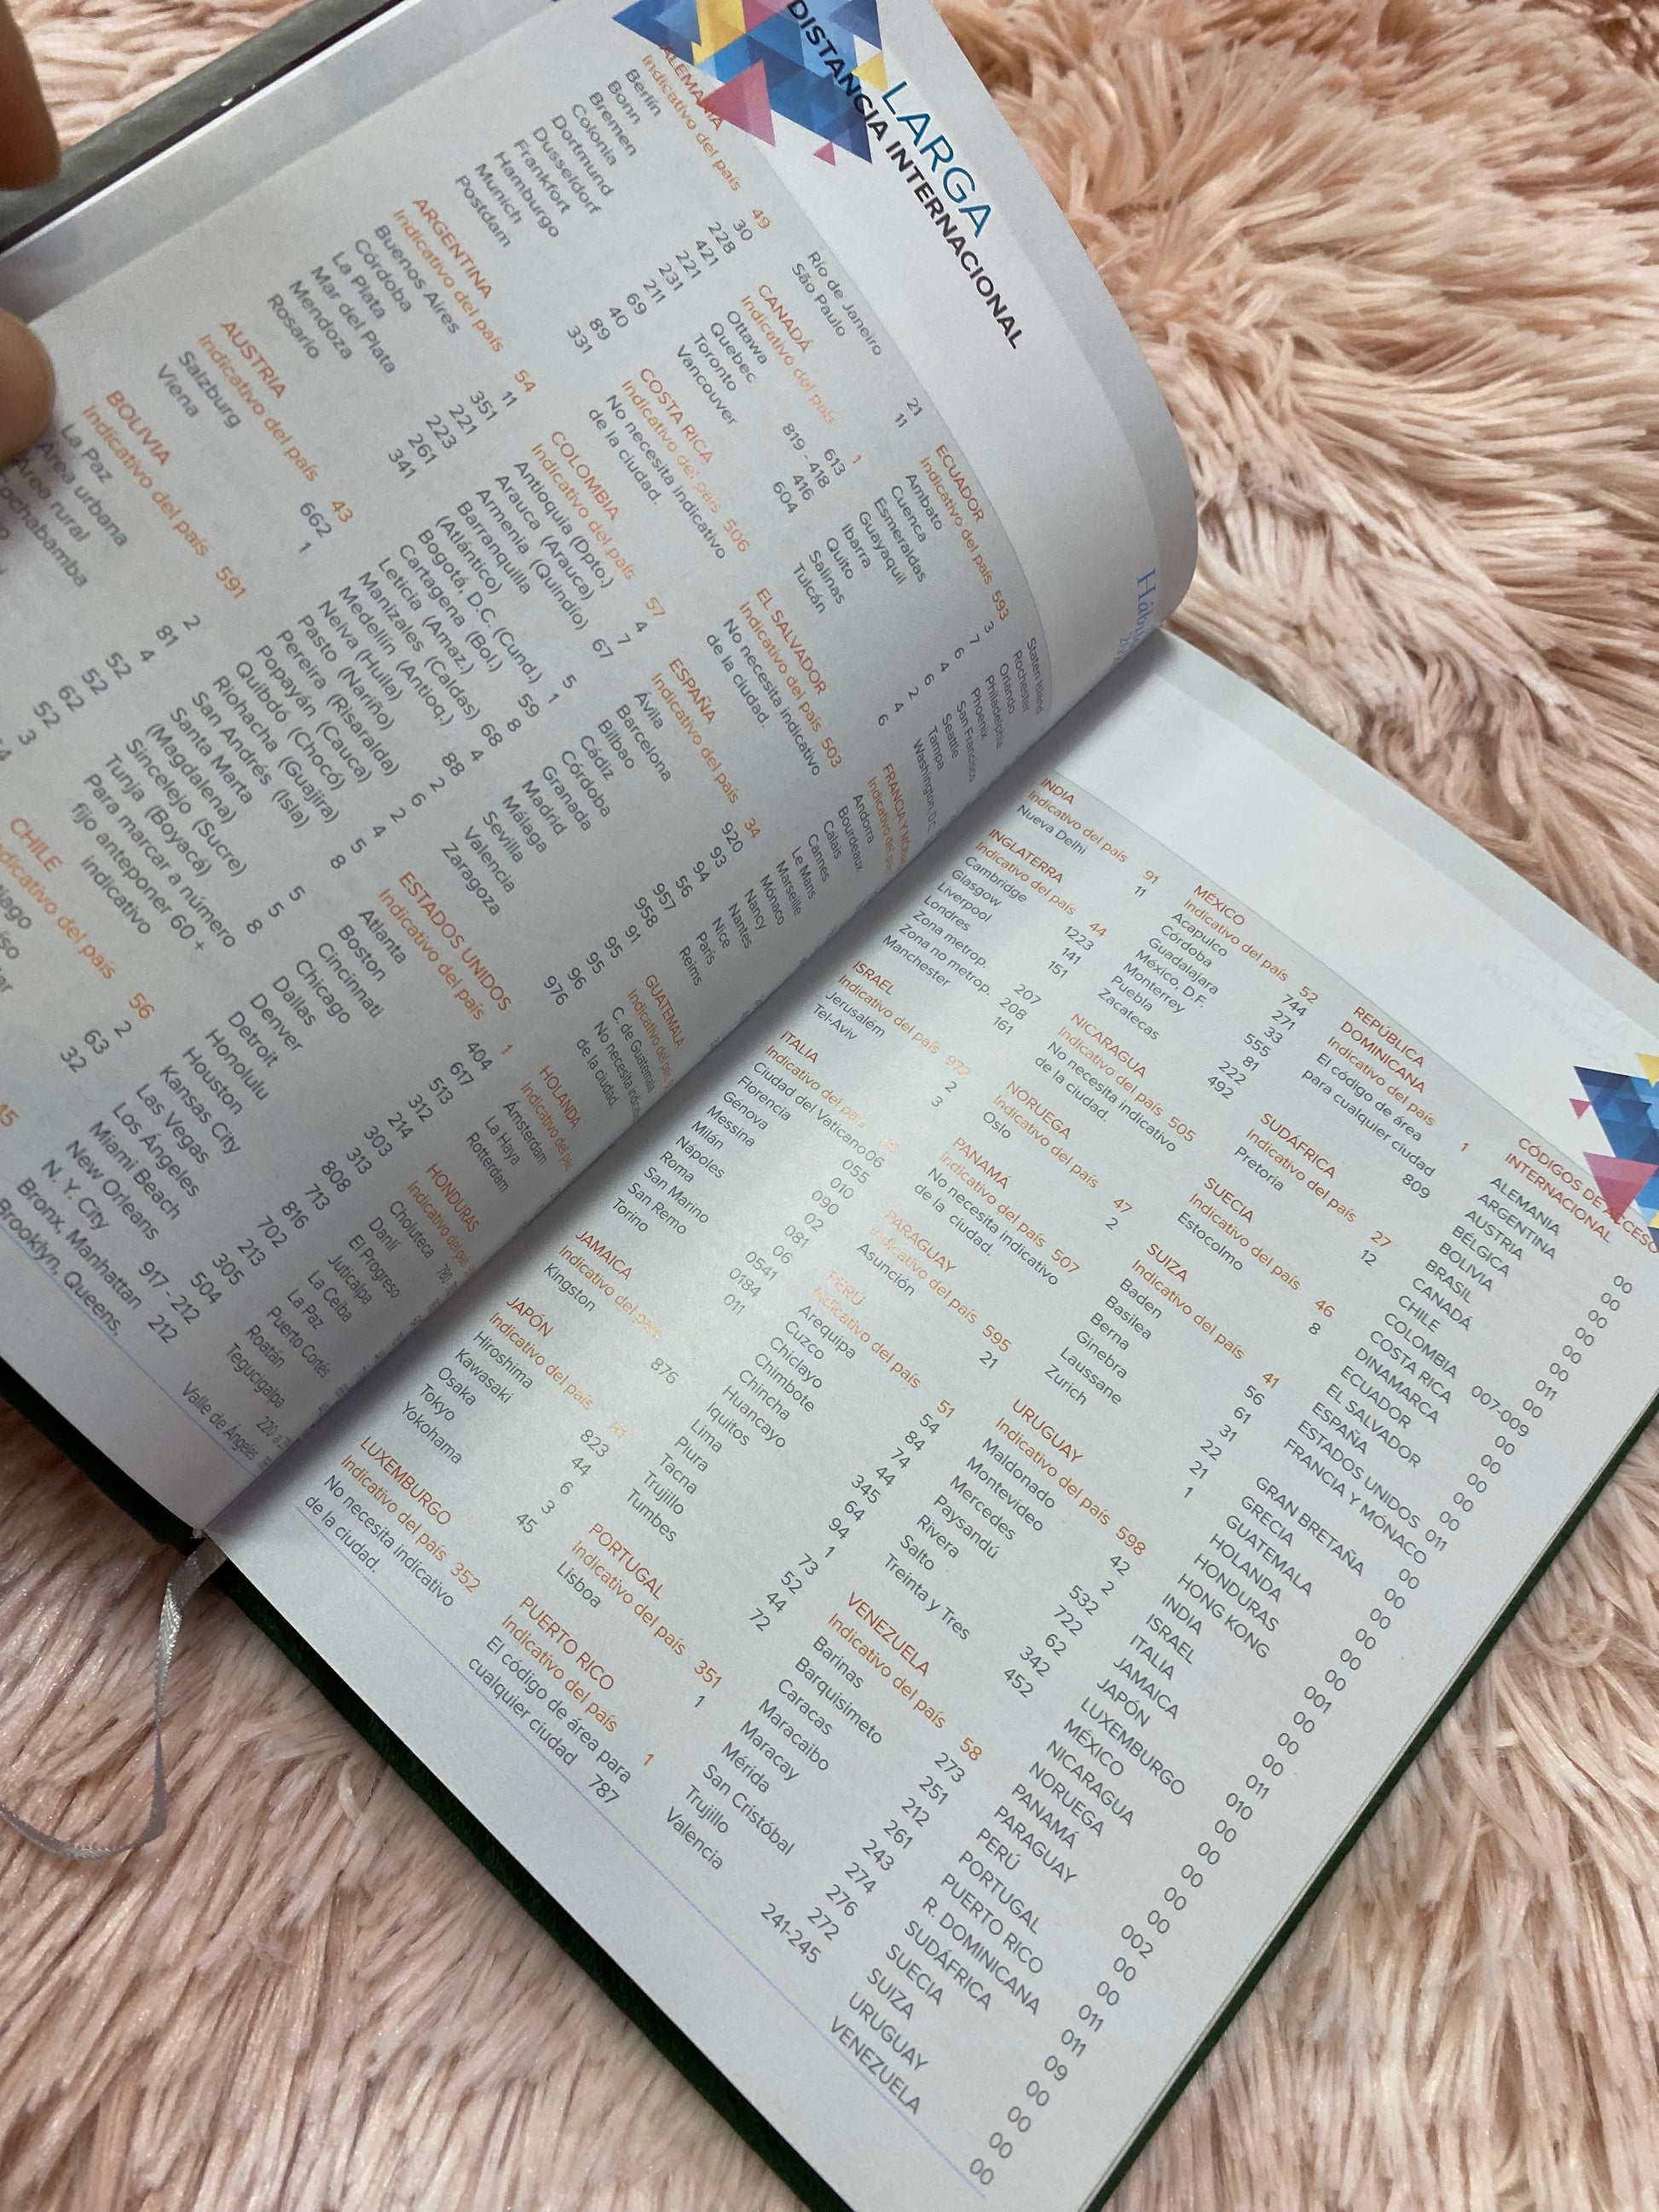 LARGA
DISTANCIA INTERNACIONAL
ALEMANIA
Indicativo del país 49
Berlín 30
Bonn 228
Bremen 421
Colonia 221
Dortmund 231
Dusseldorf 211
Frankfort 69
Hamburgo 40
Munich 89
Postdam 331
ARGENTINA
Indicativo del país 54
Buenos Aires 11
Córdoba 351
La Plata 221
Mar del Plata 223
Mendoza 261
Rosario 341
AUSTRIA
Indicativo del país 43
Salzburg 662
Viena 1
BOLIVIA
Indicativo del país 591
La Paz 2
Área urbana 81
Área rural 4
CHILE
Indicativo del país 56
2
63
32
Río de Janeiro 21
São Paulo 11
CANADÁ
Indicativo del país 1
Ottawa 613
Quebec 819 - 418
Toronto 416
Vancouver 604
COSTA RICA
Indicativo del país 506
No necesita indicativo
de la ciudad.
COLOMBIA
Indicativo del país 57
Antioquia (Dpto.) 4
Arauca (Arauca) 7
Armenia (Quindío) 67
Barranquilla
(Atlántico) 5
Bogotá, D.C. (Cund.) 1
Cartagena (Bol.) 59
Leticia (Amaz.) 8
Manizales (Caldas) 68
Medellín (Antioq.) 4
Neiva (Huila) 88
Pasto (Nariño) 2
Pereira (Risaralda) 6
Popayán (Cauca) 2
Quibdó (Chocó) 4
Riohacha (Guajira) 5
San Andrés (Isla) 8
Santa Marta
(Magdalena) 5
Sincelejo (Sucre) 5
Tunja (Boyacá) 8
Para marcar a número
fijo anteponer 60 +
indicativo
ECUADOR
Indicativo del país 593
Ambato 3
Cuenca 7
Esmeraldas 6
Guayaquil 4
Ibarra 6
Quito 2
Salinas 4
Tulcán 6
EL SALVADOR
Indicativo del país 503
No necesita indicativo
de la ciudad.
ESPAÑA
Indicativo del país 34
Ávila 920
Barcelona 93
Bilbao 94
Cádiz 56
Córdoba 957
Granada 958
Madrid 91
Málaga 95
Sevilla 95
Valencia 96
Zaragoza 976
ESTADOS UNIDOS
Indicativo del país 1
Atlanta 404
Boston 617
Cincinnati 513
Chicago 312
Dallas 214
Denver 303
Detroit 313
Honolulu 808
Houston 713
Kansas City 816
Las Vegas 702
Los Ángeles 213
Miami Beach 305
New Orleans 504
N. Y. City 917 - 212
Bronx, Manhattan 212
Brooklyn, Queens,
Staten Island
Rochester
Orlando
Philadelphia
Phoenix
San Francisco
Seattle
Tampa
Washington, D.C.
FRANCIA Y
Indicativo del
Andorra
Bourdeaux
Calais
Cannes
Le Mans
Marseille
Mónaco
Nancy
Nantes
Nice
París
Reims
GUATEMALA
Indicativo del país
C. de Guatemala
No necesita
de la ciudad.
HOLANDA
Indicativo del
Ámsterdam
La Haya
Rotterdam
HONDURAS
Indicativo del país
Choluteca
Danlí
El Progreso
Juticalpa
La Ceiba
La Paz
Puerto Cortés
Roatán
Tegucigalpa
Valle de Ángeles
INDIA
Indicativo del país 91
Nueva Delhi 11
INGLATERRA
Indicativo del país 44
Cambridge 1223
Glasgow 141
Liverpool 151
Londres
Zona metrop. 207
Zona no metrop. 208
Manchester 161
ISRAEL
Indicativo del país 972
Jerusalém 2
Tel-Aviv 3
ITALIA
Indicativo del país
Ciudad del Vaticano06
Florencia 055
Génova 010
Messina 090
Milán 02
Nápoles 081
Roma 06
San Marino 0541
San Remo 0184
Torino 011
JAMAICA
Indicativo del país
Kingston 876
JAPÓN
Indicativo del país 81
Hiroshima 823
Kawasaki 44
Osaka 6
Tokyo 3
Yokohama 45
LUXEMBURGO
Indicativo del país 352
No necesita indicativo
de la ciudad.
MÉXICO
Indicativo del país 52
Acapulco 744
Córdoba 271
Guadalajara 33
México, D.F. 555
Monterrey 81
Puebla 222
Zacatecas 492
NICARAGUA
Indicativo del país 505
No necesita indicativo
de la ciudad.
NORUEGA
Indicativo del país 47
Oslo 2
PANAMÁ
Indicativo del país 507
No necesita indicativo
de la ciudad.
PARAGUAY
Indicativo del país 595
Asunción 21
PERÚ
Indicativo del país 51
Arequipa 54
Cuzco 84
Chiclayo 74
Chimbote 44
Chincha 345
Huancayo 64
Iquitos 94
Lima 1
Piura 73
Tacna 52
Trujillo 44
Tumbes 72
PORTUGAL
Indicativo del país 351
Lisboa 1
PUERTO RICO
Indicativo del país 1
El código de área para
cualquier ciudad 787
REPÚBLICA
DOMINICANA
Indicativo del país 1
El código de área
para cualquier ciudad 809
SUDÁFRICA
Indicativo del país 27
Pretoria 12
SUECIA
Indicativo del país 46
Estocolmo 8
SUIZA
Indicativo del país 41
Baden 56
Basilea 61
Berna 31
Ginebra 22
Laussane 21
Zurich 1
URUGUAY
Indicativo del país 598
Maldonado 42
Montevideo 2
Mercedes 532
Paysandú 722
Rivera 62
Salto 342
Treinta y Tres 452
VENEZUELA
Indicativo del país 58
Barinas 273
Barquisimeto 251
Caracas 212
Maracaibo 261
Maracay 243
Mérida 274
San Cristóbal 276
Trujillo 272
Valencia 241-245
CÓDIGOS DE ACCESO
INTERNACIONAL
ALEMANIA 00
ARGENTINA 00
AUSTRIA 00
BÉLGICA 00
BOLIVIA 00
BRASIL 00
CANADÁ 011
CHILE 00
COLOMBIA 007-009
COSTA RICA 00
DINAMARCA 00
ECUADOR 00
EL SALVADOR 00
ESPAÑA 00
ESTADOS UNIDOS 011
FRANCIA Y MÓNACO 00
GRAN BRETAÑA 00
GRECIA 00
GUATEMALA 00
HOLANDA 00
HONDURAS 00
HONG KONG 001
INDIA 00
ISRAEL 00
ITALIA 00
JAMAICA 011
JAPÓN 010
LUXEMBURGO 00
MÉXICO 00
NICARAGUA 00
NORUEGA 00
PANAMÁ 002
PARAGUAY 00
PERÚ 00
PORTUGAL 00
PUERTO RICO 011
R. DOMINICANA 011
SUDÁFRICA 09
SUECIA 00
SUIZA 00
URUGUAY 00
VENEZUELA 00